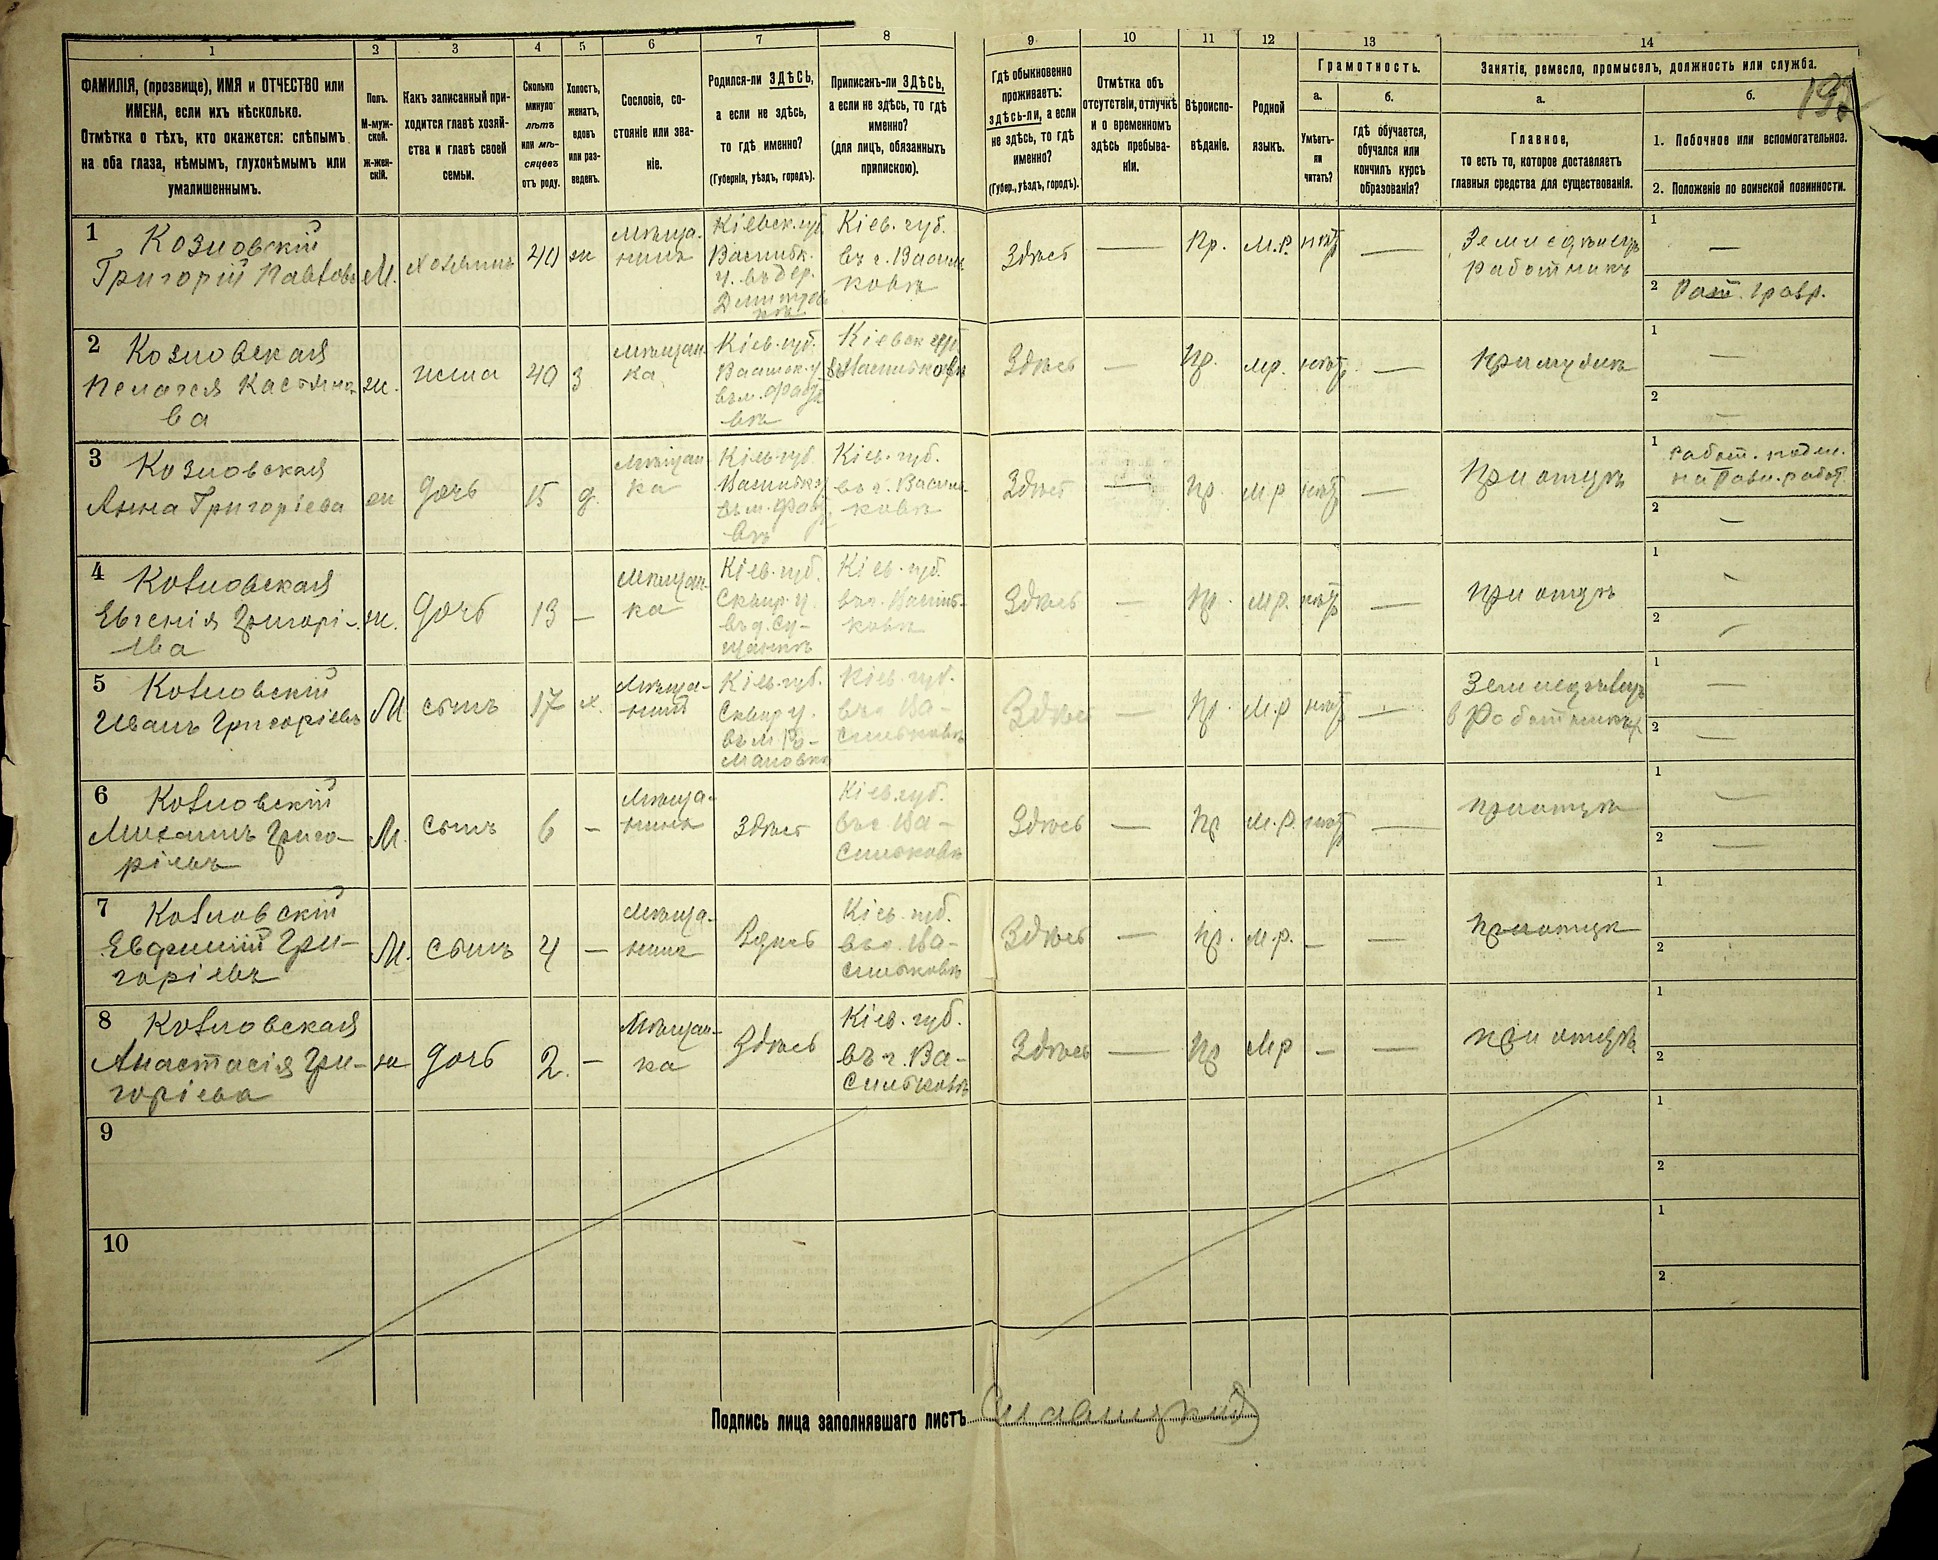 1 2 3 4 5 6 7 8 9 10 11 12 13 14
ФАМИЛІЯ, (прозвище), ИМЯ и ОТЧЕСТВО или
ИМЕНА, если ихъ нѣсколько.
Отмѣтка о тѣхъ, кто окажется: слѣпымъ
на оба глаза, нѣмымъ, глухонѣмымъ или
умалишеннымъ.
Полъ.
М-муж-
ской.
ж-жен-
скій.
Какъ записанный при-
ходится главѣ хозяй-
ства и главѣ своей
семьи.
Сколько
минуло
лѣтъ
или мѣ-
сяцевъ
отъ роду.
Холостъ,
женатъ,
вдовъ
или раз-
веденъ.
Сословіе, со-
стояніе или зва-
ніе.
Родился-ли ЗДѢСЬ,
а если не здѣсь,
то гдѣ именно?
(Губернія, уѣздъ, городъ).
Приписанъ-ли ЗДѢСЬ,
а если не здѣсь, то гдѣ
именно?
(для лицъ, обязанныхъ
припискою).
Гдѣ обыкновенно
проживаетъ:
здѣсь-ли, а если
не здѣсь, то гдѣ
именно?
(Губер., уѣздъ, городъ).
Отмѣтка объ
отсутствіи, отлучкѣ
и о временномъ
здѣсь пребыва-
ніи.
Вѣроиспо-
вѣданіе.
Родной
языкъ.
Грамотность.
а.
Умѣетъ-
ли
читать?
б.
гдѣ обучается,
обучался или
кончилъ курсъ
образованія?
Занятіе, ремесло, промыселъ, должность или служба.
а.
Главное,
то есть то, которое доставляетъ
главныя средства для существованія.
б.
1. Побочное или вспомогательное.
2. Положеніе по воинской повинности.
1 Козловскій
Григорій Павловъ
М.
хозяинъ
40
ж
мѣща-
нинъ
Кіевск. губ.
Васильк.
у. въ дер.
Дмитров
кѣ
Кіев. губ.
въ г. Василь
ковѣ
Здѣсь
—
Пр.
М.Р.
нѣтъ
—
Земледѣлецъ
работникъ
1 —
2 Рат.
2 Козловская
Пелагея Касьяно-
ва
ж.
жена
40
з
мѣщан-
ка
Кіев. губ.
Кіевск губ.
въ Васильковѣ
Здѣсь
—
Пр.
мр.
нѣтъ
—
При мужѣ
1 —
2 —
3 Козловская
Анна Григоріева
ж
дочь
15
д.
мѣщан-
ка
Кіев. губ.
Кіев. губ.
въ г. Василь-
ковѣ
Здѣсь
—
Пр.
м р
нѣтъ
—
При отцѣ
1 работ.
2 —
4 Козловская
Евгенія Григорі-
ева
ж.
дочь
13
—
мѣщан-
ка
Кіев. губ.
Сквир. у.
Кіев. губ.
въ г. Василь-
ковѣ
Здѣсь
—
Пр.
мр.
нѣтъ
—
При отцѣ
1 -
2 -
5 Козловскій
Иванъ Григоріевъ
М
сынъ
17
х.
мѣща-
нинъ
Кіев. губ.
Сквир у.
въ м. Ро-
мановкѣ
Кіев. губ.
въ г. Ва-
сильковѣ
Здѣсь
—
Пр.
М.р
нѣтъ
—
Земледѣлецъ
1 —
2 —
6 Козловскій
Михаилъ Григо-
ріевъ
М.
сынъ
6
—
мѣща-
нинъ
Здѣсь
Кіев. губ.
въ г. Ва-
сильковѣ
Здѣсь
—
Пр
М.Р.
нѣтъ
—
При отцѣ
1 —
2 —
7 Козловскій
Евфимій Гри-
горіевъ
М.
сынъ
4
—
мѣща-
нинъ
Здѣсь
Кіев. губ.
въ г. Ва-
сильковѣ
Здѣсь
—
Пр.
м.р.
—
—
При отцѣ
1
2
8 Козловская
Анастасія Гри-
горіева
ж
дочь
2.
—
Мѣщан-
ка
Здѣсь
Кіев. губ.
въ г. Ва-
сильковѣ
Здѣсь
—
Пр
Мр
—
—
При отцѣ
1
2
9
1
2
10
1
2
Подпись лица заполнявшаго листъ